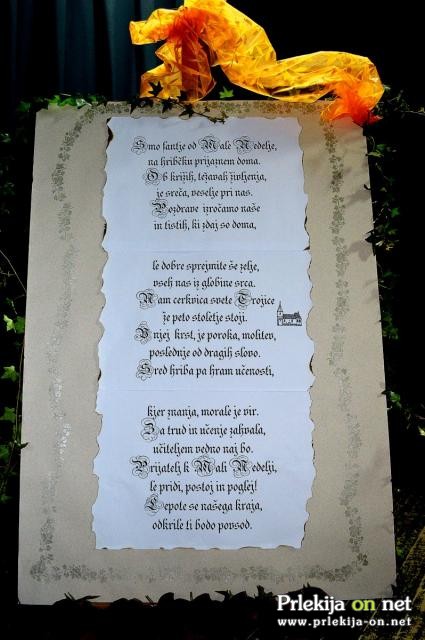 Smo fantje od Male Nedelje,
na hribčku prijaznem doma.
Ob križih, težavah življenja,
je sreča, veselje pri nas.
Pozdrave izročamo naše
in tistih, ki zdaj so doma,
le dobre sprejmite še želje,
vseh nas iz globine srca.
Nam cerkvica svete Trojice
že peto stoletje stoji.
V njej krst, je poroka, molitev,
poslednje od dragih slovo.
Sred hriba pa hram učenosti,
kjer znanja, morale je vir.
Za trud in učenje zahvala,
učiteljem vedno naj bo.
Prijatelj k Mali Nedelji,
le pridi, postoj in poglej!
Lepote se našega kraja,
odkrile ti bodo povsod.
Prlekija on net
www.prlekija-on.net